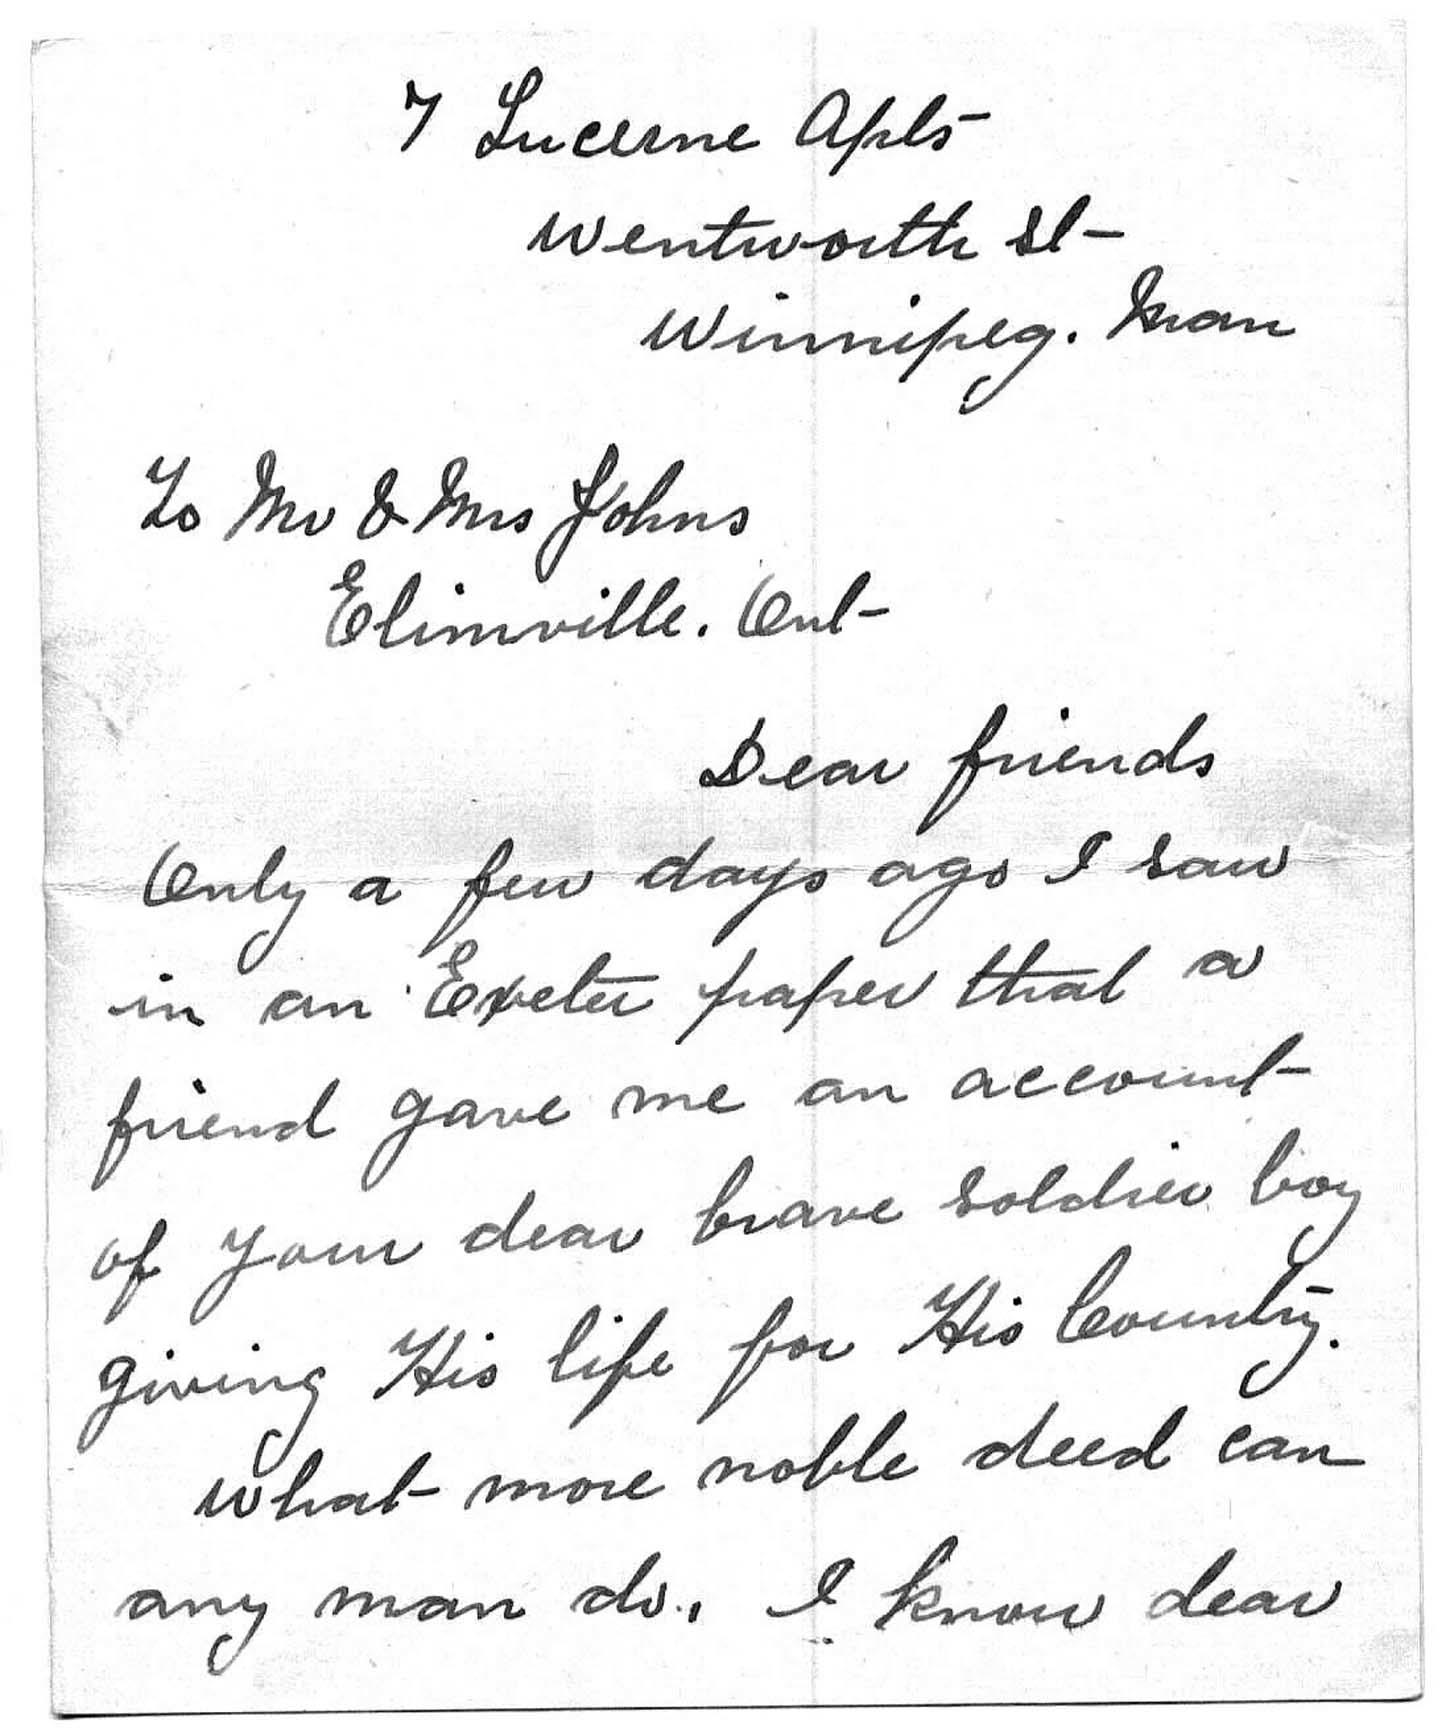 7 Lucerne Apts
Wentworth St
Winnipeg. Man
To Mr & Mrs Johns
Elimville. Ont
Dear friends
Only a few days ago I saw
in an Exeter paper that a
friend gave me an account
of your dear brave soldier boy
giving His life for His Country.
What more noble deed can
any man do. I know dear